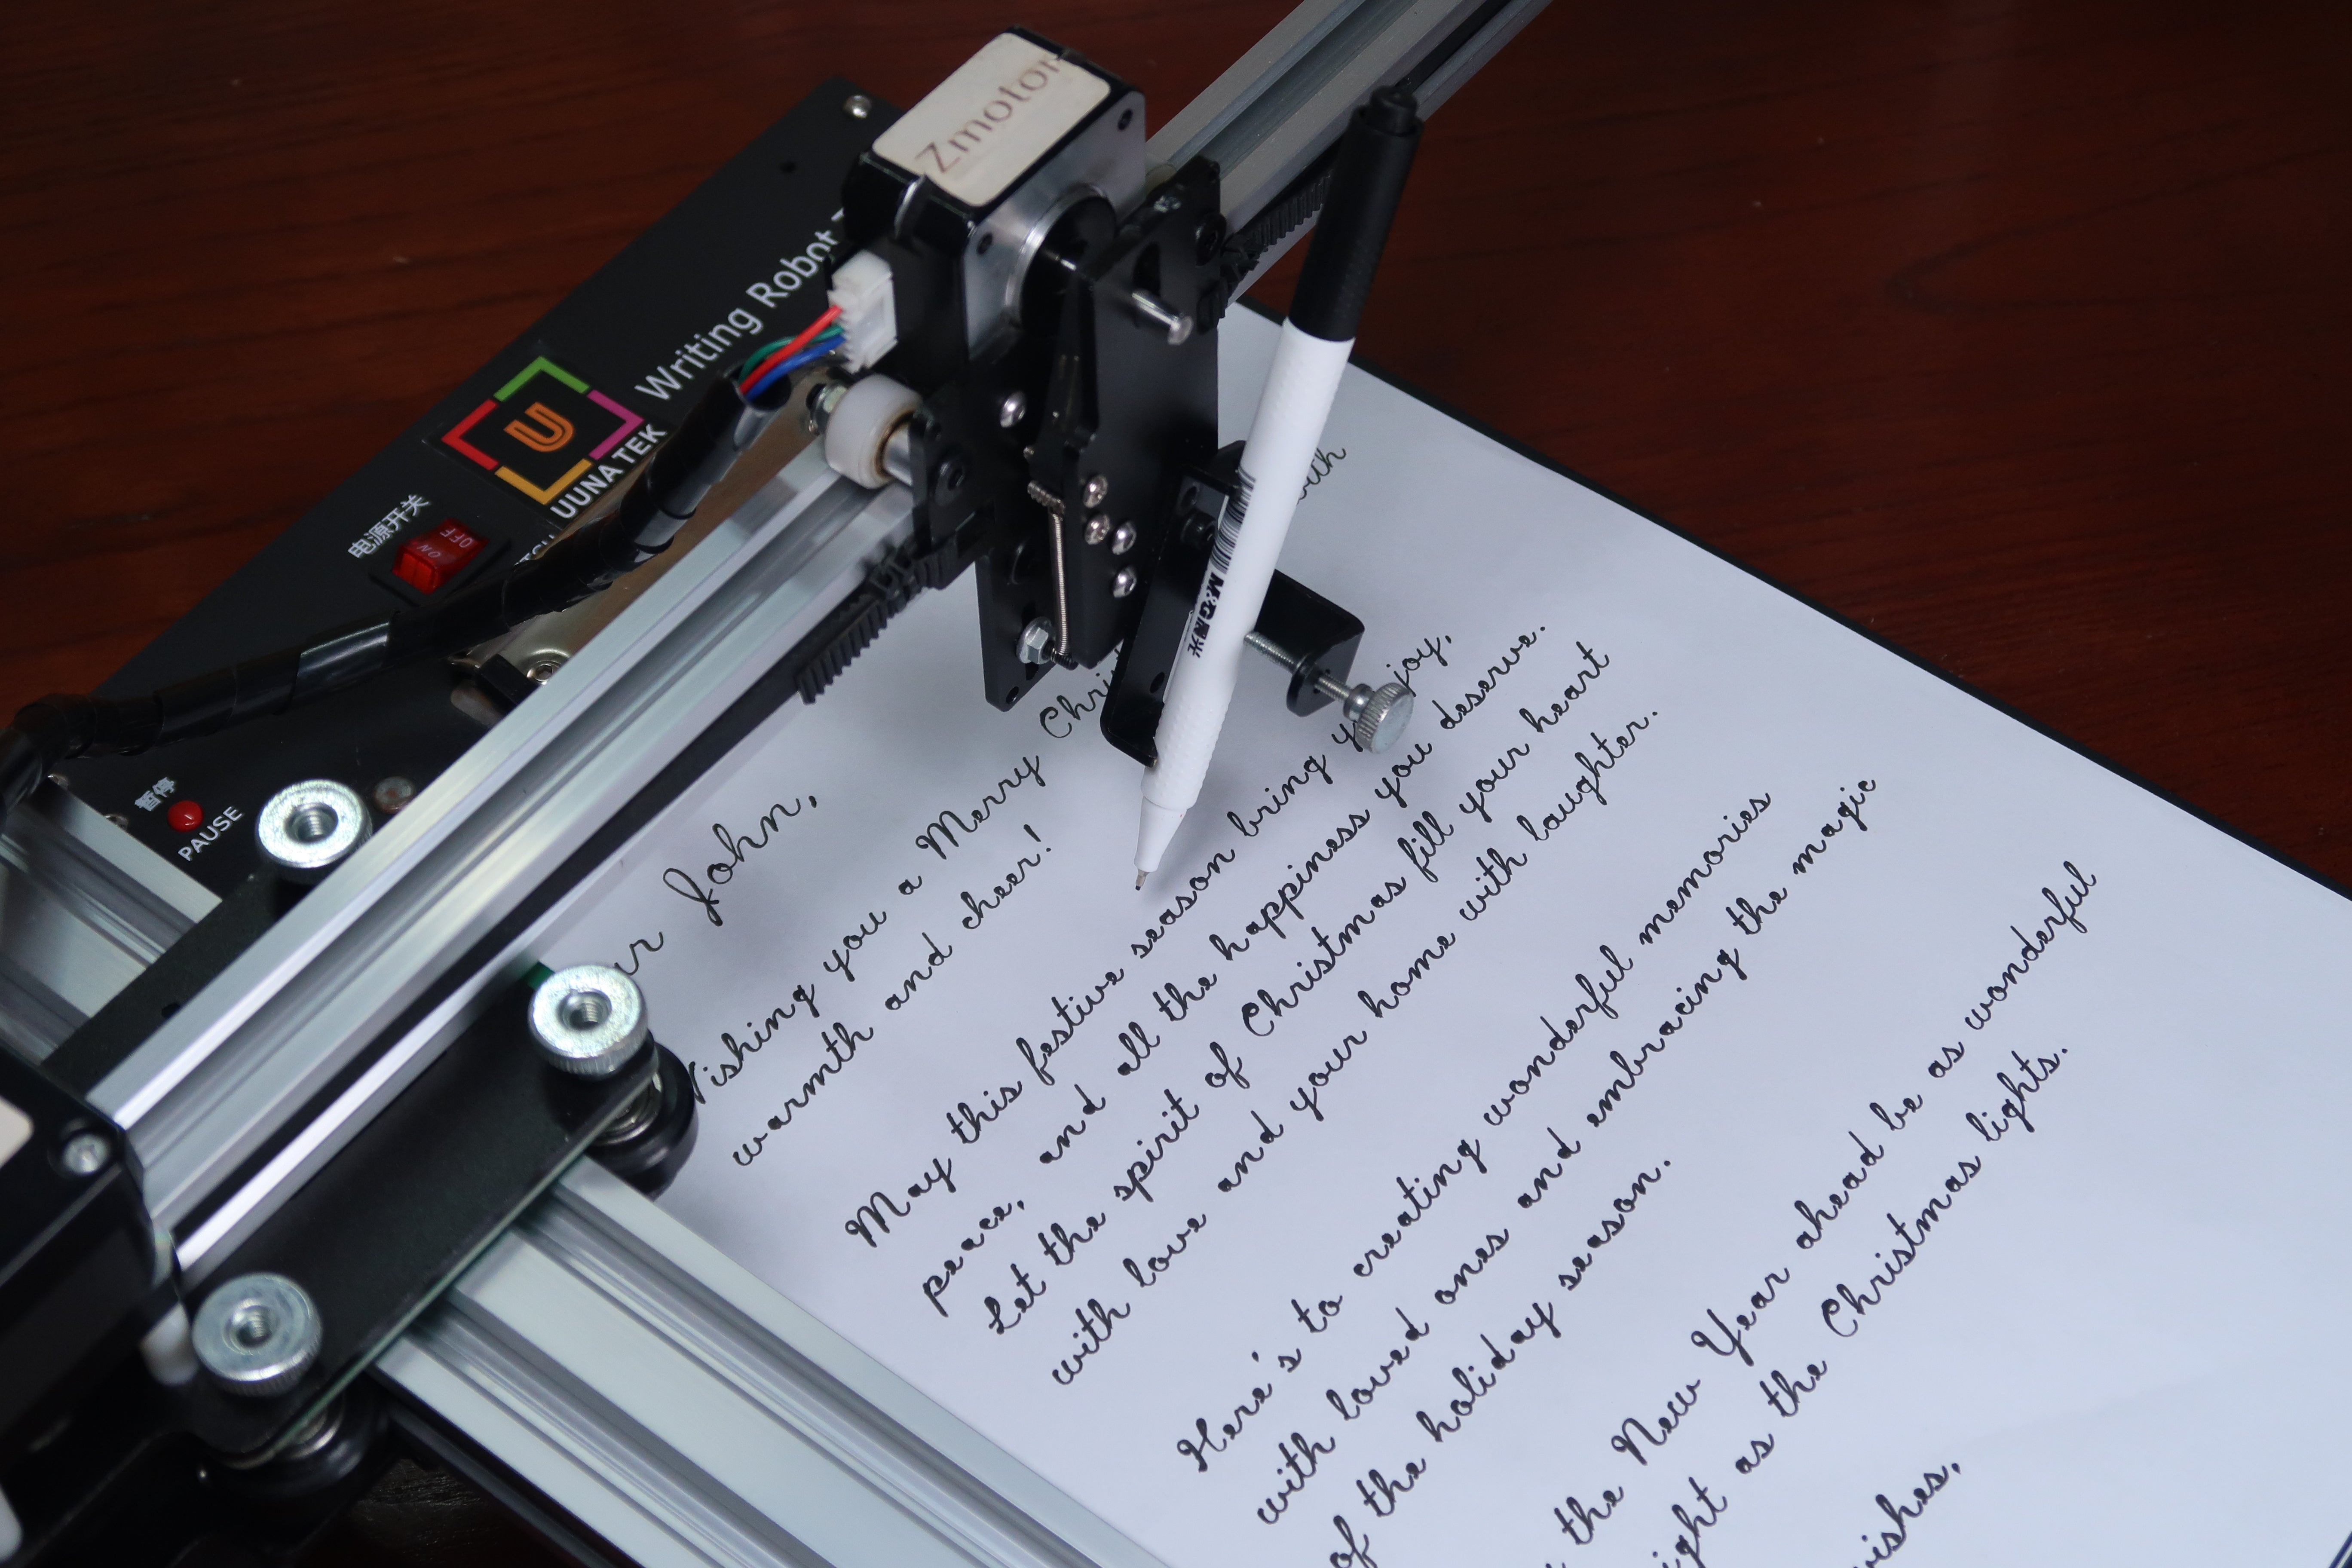 Zmotor
Writing Robot
U
UUNA TEK
电源开关
ON OFF
暂停
PAUSE
M&G晨光
John,
you a Merry with
warmth and cheer!
May this festive season bring joy,
peace, and all the happiness you deserve.
Let the spirit of Christmas fill your heart
with love and your home with laughter.
Here's to creating wonderful memories
with loved ones and embracing the magic
of the holiday season.
the New Year ahead be as wonderful
as the Christmas lights.